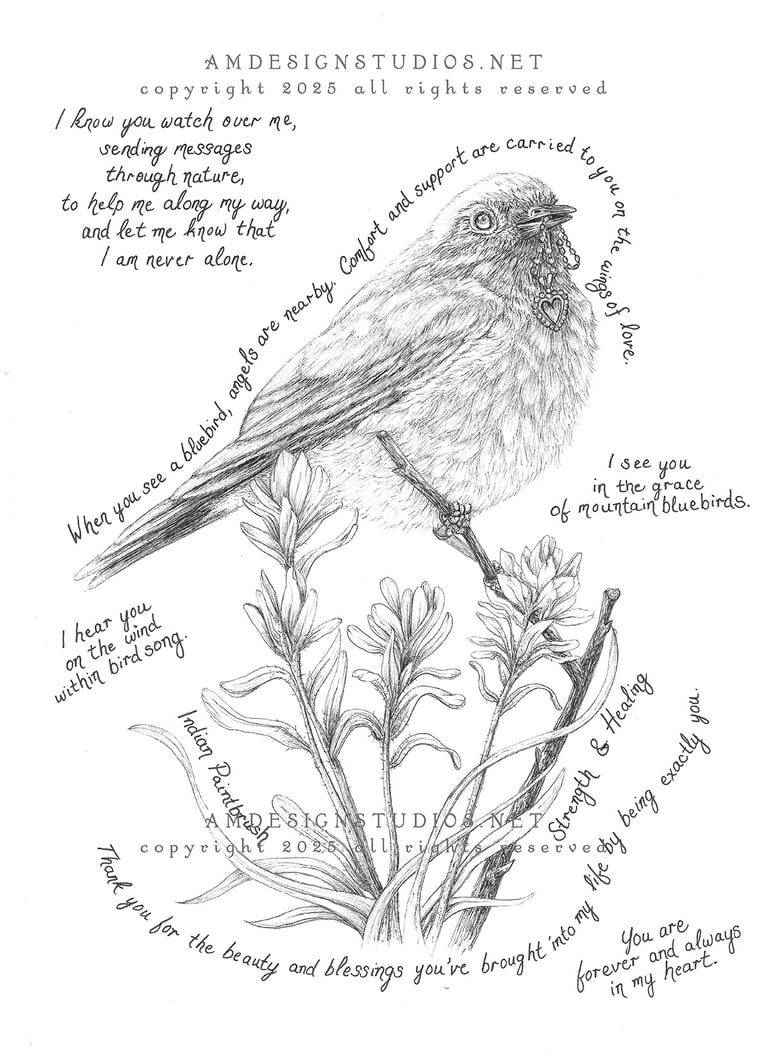 AMDESIGNSTUDIOS.NET
copyright 2025 all rights reserved
I know you watch over me,
sending messages
through nature,
to help me along my way,
and let me know that
I am never alone.
When you see a bluebird, angels are nearby. Comfort and support are carried to you on the wings of love.
I see you
in the grace
of mountain bluebirds.
I hear you
on the wind
within birdsong.
Indian Paintbrush
Strength & Healing
AMDESIGNSTUDIOS.NET
copyright 2025 all rights reserved
Thank you for the beauty and blessings you've brought into my life by being exactly you.
You are
forever and always
in my heart.